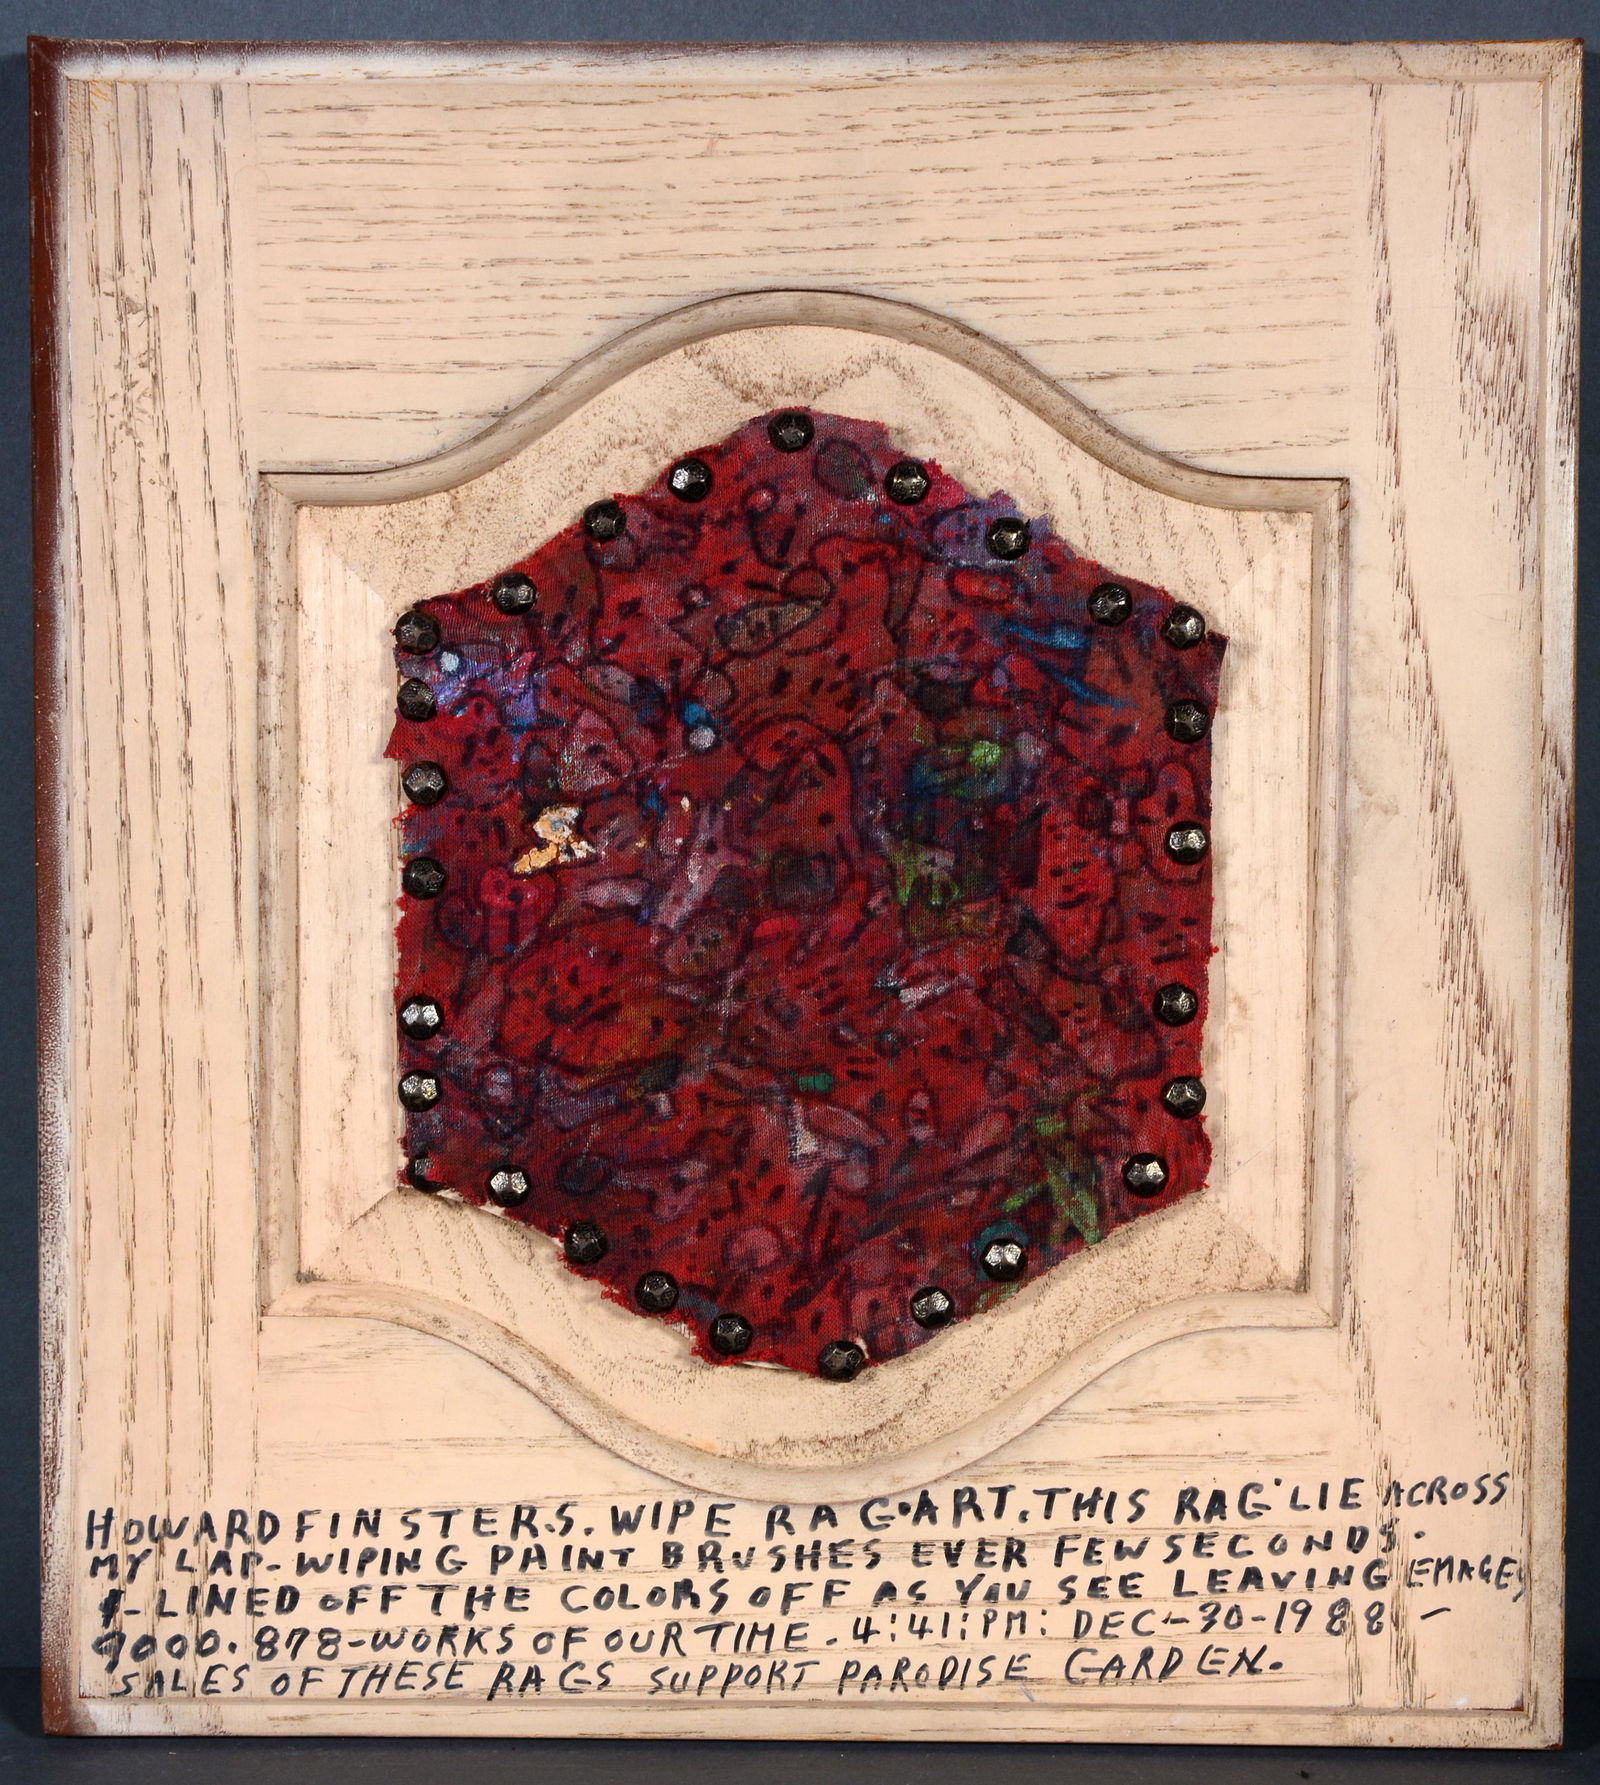 HOWARD FINSTER.S. WIPE RAG.ART. THIS RAG LIE ACROSS
MY LAP-WIPING PAINT BRUSHES EVER FEW SECONDS.
I-LINED OFF THE COLORS OFF AS YOU SEE LEAVING EMAGES
9000.878-WORKS OF OUR TIME. 4:41:PM: DEC-30-1988-
SALES OF THESE RAGS SUPPORT PARODISE GARDEN.